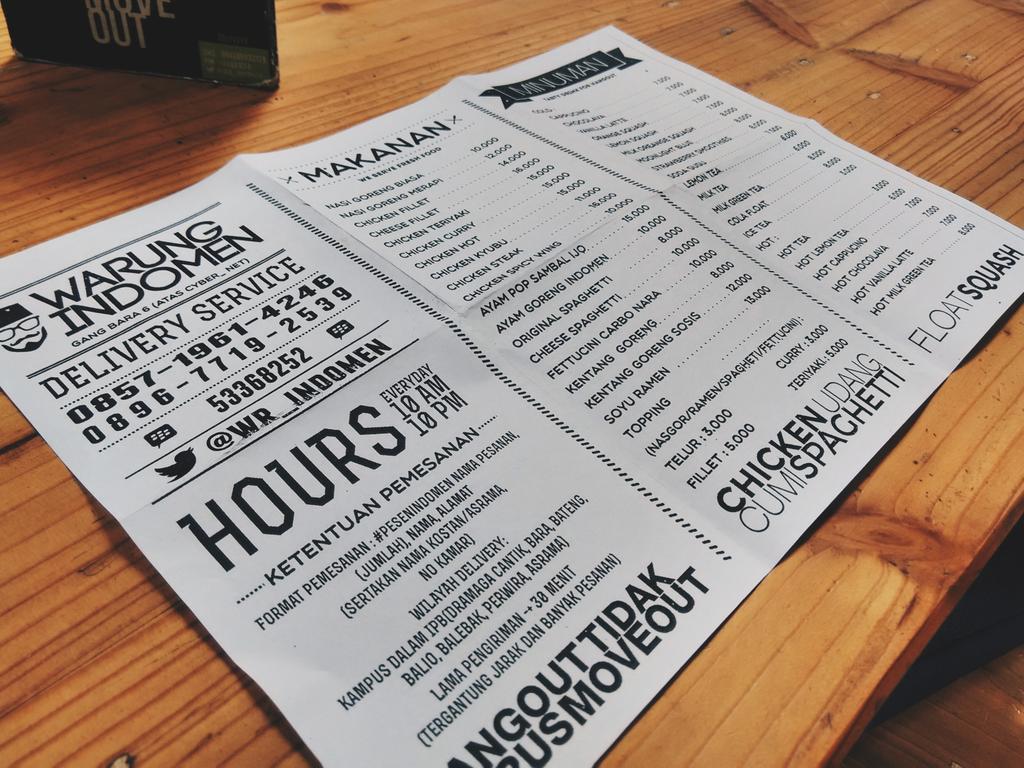 MOVE
OUT
WARUNG
INDOMEN
GANG BARA 6 (ATAS CYBER_NET)
DELIVERY SERVICE
0857-1961-4246
0896-7719-2539
53368252
@WR_INDOMEN
HOURS
EVERYDAY
10 AM
10 PM
KETENTUAN PEMESANAN
FORMAT PEMESANAN : #PESENINDOMEN NAMA PESANAN,
(JUMLAH), NAMA, ALAMAT
(SERTAKAN NAMA KOSTAN/ASRAMA,
NO KAMAR)
WILAYAH DELIVERY:
KAMPUS DALAM IPB(DRAMAGA CANTIK, BARA, BATENG,
BALIO, BALEBAK, PERWIRA, ASRAMA)
LAMA PENGIRIMAN -+ 30 MENIT
(TERGANTUNG JARAK DAN BANYAK PESANAN)
ANGOUTTIDAK
RUSMOVEOUT
MAKANAN
WE SERVE FRESH FOOD
NASI GORENG BIASA 10.000
NASI GORENG MERAPI 12.000
CHICKEN FILLET
CHEESE FILLET
CHICKEN TERIYAKI
CHICKEN CURRY
CHICKEN HOT
CHICKEN K-UBU
CHICKEN STEAK
CHICKEN SPICY WING
AYAM POP SAMBAL IJO
AYAM GORENG INDOMEN
ORIGINAL SPAGHETTI
CHEESE SPAGHETTI
FETTUCINI CARBO NARA
KENTANG GORENG
KENTANG GORENG SOSIS
SOYU RAMEN
TOPPING
(NASGOR/RAMEN/SPAGHETI/FETTUCINI) :
TELUR : 3.000
CURRY : 3.000
FILLET : 5.000
TERIYAKI : 5.000
CHICKENUDANG
CUMISPAGHETTI
MINUMAN
CAPPUCINO
CHOCOLAVA
VANILLA LATTE
ORANGE SQUASH
MILK ORANGE SQUASH
MOONLIGHT BLUE
STRAWBERRY SMOOTHIES
LEMON TEA
MILK TEA
MILK GREEN TEA
COLA FLOAT
ICE TEA
HOT :
HOT TEA
HOT LEMON TEA
HOT CAPPUCINO
HOT CHOCOLAVA
HOT VANILLA LATTE
HOT MILK GREEN TEA
FLOATSQUASH